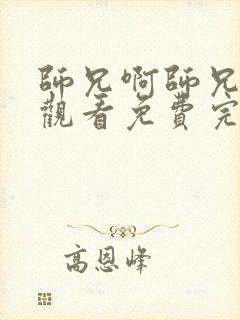 師兄啊師兄
觀看免費完
高恩峰